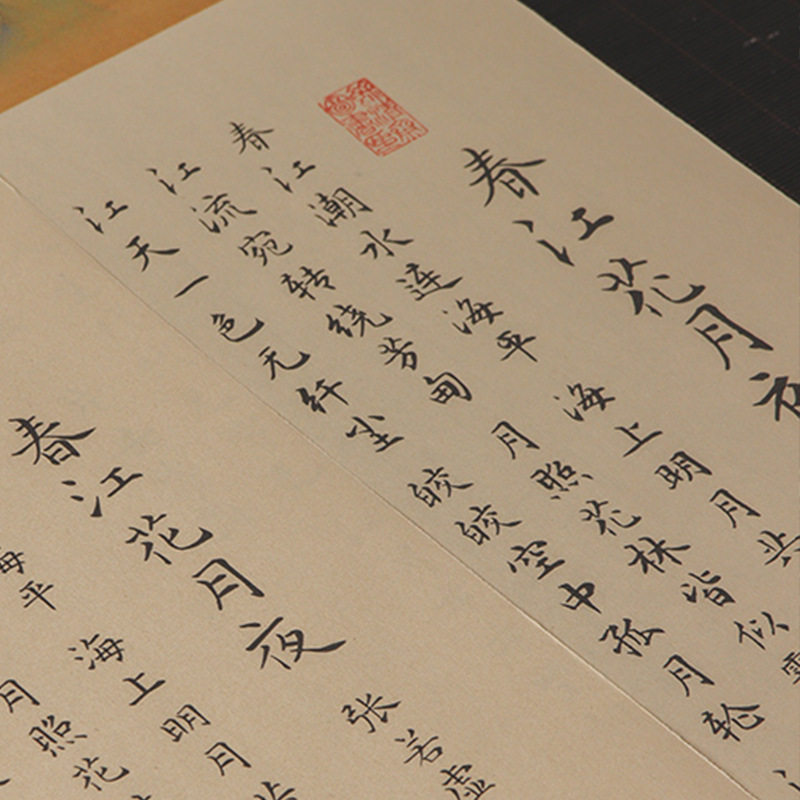 春江花月夜
春江潮水连海平 海上明月共
江流宛转绕芳甸 月照花林皆似
江天一色无纤尘 皎皎空中孤月轮
春江花月夜
张若虚
海平 海上明月
月照花